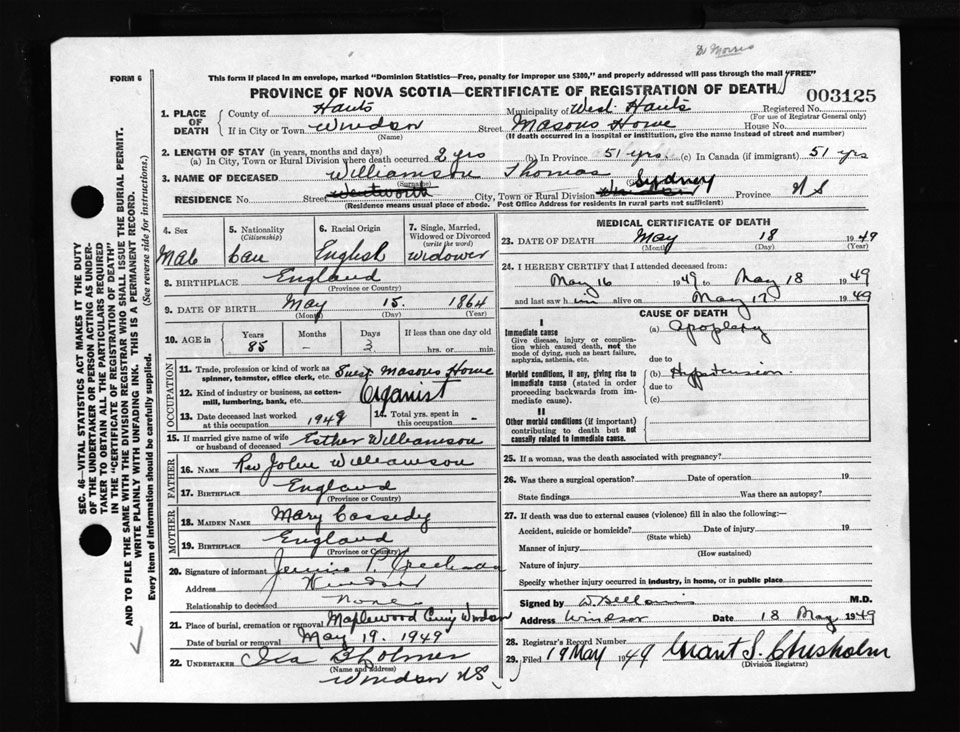 Dr Morris
FORM 6
This form if placed in an envelope, marked "Dominion Statistics—Free, penalty for improper use $300," and properly addressed will pass through the mail "FREE"
PROVINCE OF NOVA SCOTIA—CERTIFICATE OF REGISTRATION OF DEATH
003125
1. PLACE OF DEATH
County of Hants Municipality of West Hants Registered No.
(For use of Registrar General only)
If in City or Town Windsor Street Masons Home House No.
(Name) (If death occurred in a hospital or institution, give the name instead of street and number)
2. LENGTH OF STAY (in years, months and days)
(a) In City, Town or Rural Division where death occurred 2 yrs (b) In Province 51 yrs. (c) In Canada (if immigrant) 51 yrs
3. NAME OF DECEASED Williamson Thomas
(Surname)
RESIDENCE No. Street Wentworth City, Town or Rural Division Windsor Sydney Province N S
(Residence means usual place of abode. Post Office Address for residents in rural parts not sufficient)
4. Sex
Male
5. Nationality
(Citizenship)
Can
6. Racial Origin
English
7. Single, Married, Widowed or Divorced
(write the word)
widower
8. BIRTHPLACE England
(Province or Country)
9. DATE OF BIRTH May 15. 1864
(Month) (Day) (Year)
10. AGE in Years Months Days If less than one day old
85 - 3 hrs. or min.
OCCUPATION
11. Trade, profession or kind of work as spinner, teamster, office clerk, etc. Guest Masons Home
12. Kind of industry or business, as cotton-mill, lumbering, bank, etc. Organist
13. Date deceased last worked at this occupation 1949
14. Total yrs. spent in this occupation -
15. If married give name of wife or husband of deceased Esther Williamson
FATHER
16. NAME Rev John Williamson
17. BIRTHPLACE England
(Province or Country)
MOTHER
18. MAIDEN NAME Mary Cassedy
19. BIRTHPLACE England
(Province or Country)
20. Signature of informant Jennie P.
Address Windsor
Relationship to deceased None
21. Place of burial, cremation or removal Maplewood Cem'y Windsor
Date of burial or removal May 19. 1949
22. UNDERTAKER Ira B Holmes
(Name and address)
Windsor NS
MEDICAL CERTIFICATE OF DEATH
23. DATE OF DEATH May 18 1949
(Month) (Day) (Year)
24. I HEREBY CERTIFY that I attended deceased from:
May 16 1949 to May 18 1949
and last saw him alive on May 17 1949
CAUSE OF DEATH
I
Immediate cause
Give disease, injury or complication which caused death, not the mode of dying, such as heart failure, asphyxia, asthenia, etc.
(a) Apoplexy
due to
Morbid conditions, if any, giving rise to immediate cause (stated in order proceeding backwards from immediate cause).
(b) Hypertension.
due to
(c)
II
Other morbid conditions (if important) contributing to death but not causally related to immediate cause.
25. If a woman, was the death associated with pregnancy?
26. Was there a surgical operation? Date of operation 19
State findings Was there an autopsy?
27. If death was due to external causes (violence) fill in also the following:—
Accident, suicide or homicide? Date of injury 19
(State which)
Manner of injury
(How sustained)
Nature of injury
Specify whether injury occurred in industry, in home, or in public place
Signed by M.D.
Address Windsor Date 18 May 1949
28. Registrar's Record Number
29. Filed 19 May 1949 Grant S. Chisholm
(Division Registrar)
SEC. 46—VITAL STATISTICS ACT MAKES IT THE DUTY
OF THE UNDERTAKER OR PERSON ACTING AS UNDER-
TAKER TO OBTAIN ALL THE PARTICULARS REQUIRED
IN THE "CERTIFICATE OF REGISTRATION OF DEATH"
AND TO FILE THE SAME WITH THE DIVISION REGISTRAR WHO SHALL ISSUE THE BURIAL PERMIT.
WRITE PLAINLY WITH UNFADING INK. THIS IS A PERMANENT RECORD.
Every item of information should be carefully supplied. (See reverse side for instructions.)